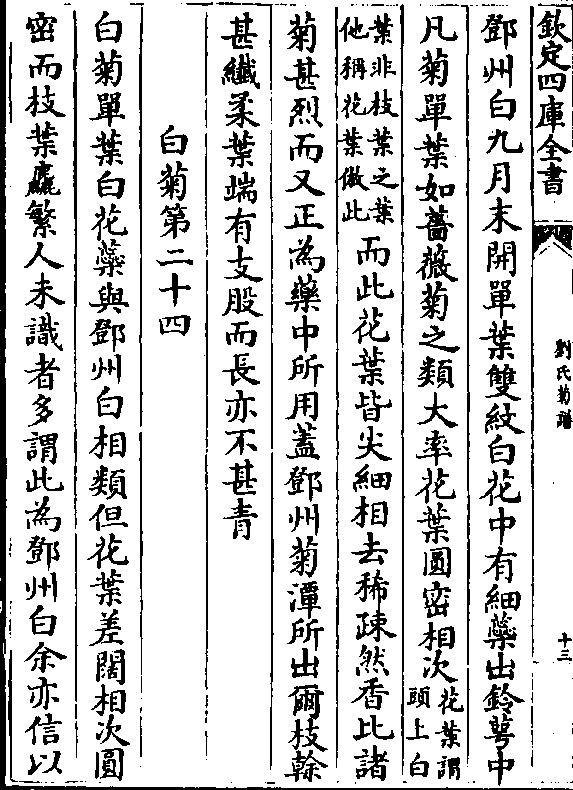 欽定四庫全書
劉氏菊譜
十三
鄧州白九月末開單葉雙紋白花中有細蘂出鈴萼中
凡菊單葉如薔薇菊之類大率花葉圓密相次花葉謂頭上白
葉非枝葉之葉他稱花葉倣此而此花葉皆尖細相去稀疎然香比諸
菊甚烈而又正為藥中所用蓋鄧州菊潭所出爾枝榦
甚纖柔葉端有支股而長亦不甚青
白菊第二十四
白菊單葉白花蘂與鄧州白相類但花葉差闊相次圓
密而枝葉麤繁人未識者多謂此為鄧州白余亦信以